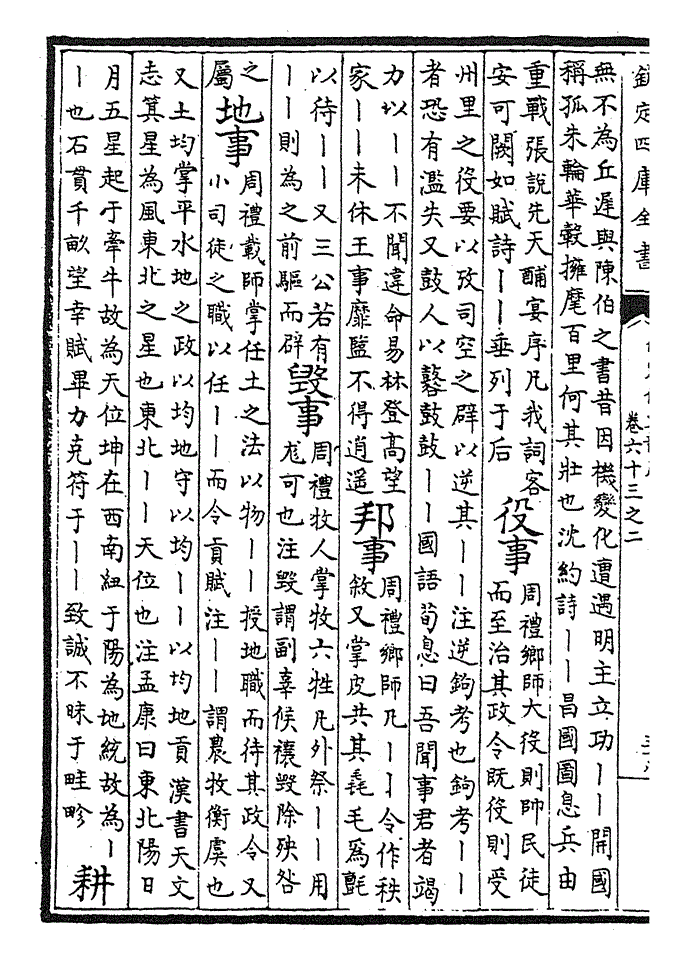 欽定四庫全書
卷六十三之二
無不為丘遲與陳伯之書昔因機變化遭遇明主立功丨丨開國
稱孤朱輪華轂擁麾百里何其壯也沈約詩丨丨昌國圖息兵由
重戰張說先天酺宴序凡我詞客
安可闕如賦詩丨丨垂列于后
役事
周禮鄉師大役則帥民徒
而至治其政令既役則受
州里之役要以攷司空之辟以逆其丨丨注逆鉤考也鉤考丨丨
者恐有濫失又鼓人以鼛鼓鼓丨丨國語荀息曰吾聞事君者竭
力以丨丨不聞違命易林登高望
家丨丨未休王事靡盬不得逍遥
邦事
周禮鄉師凡丨丨令作秩
敘又掌皮共其毳毛為氈
以待丨丨又三公若有
丨丨則為之前驅而辟
毀事
周禮牧人掌牧六牲凡外祭丨丨用
尨可也注毀謂副辜候禳毀除殃咎
之
屬
地事
周禮載師掌任土之法以物丨丨授地職而待其政令又
小司徒之職以任丨丨而令貢賦注丨丨謂農牧衡虞也
又土均掌平水地之政以均地守以均丨丨以均地貢 漢書天文
志箕星為風東北之星也東北丨丨天位也注孟康曰東北陽日
月五星起于牽牛故為天位坤在西南紐于陽為地統故為丨
丨也石貫千畝望幸賦畢力克符于丨丨致誠不昧于畦畛
耕